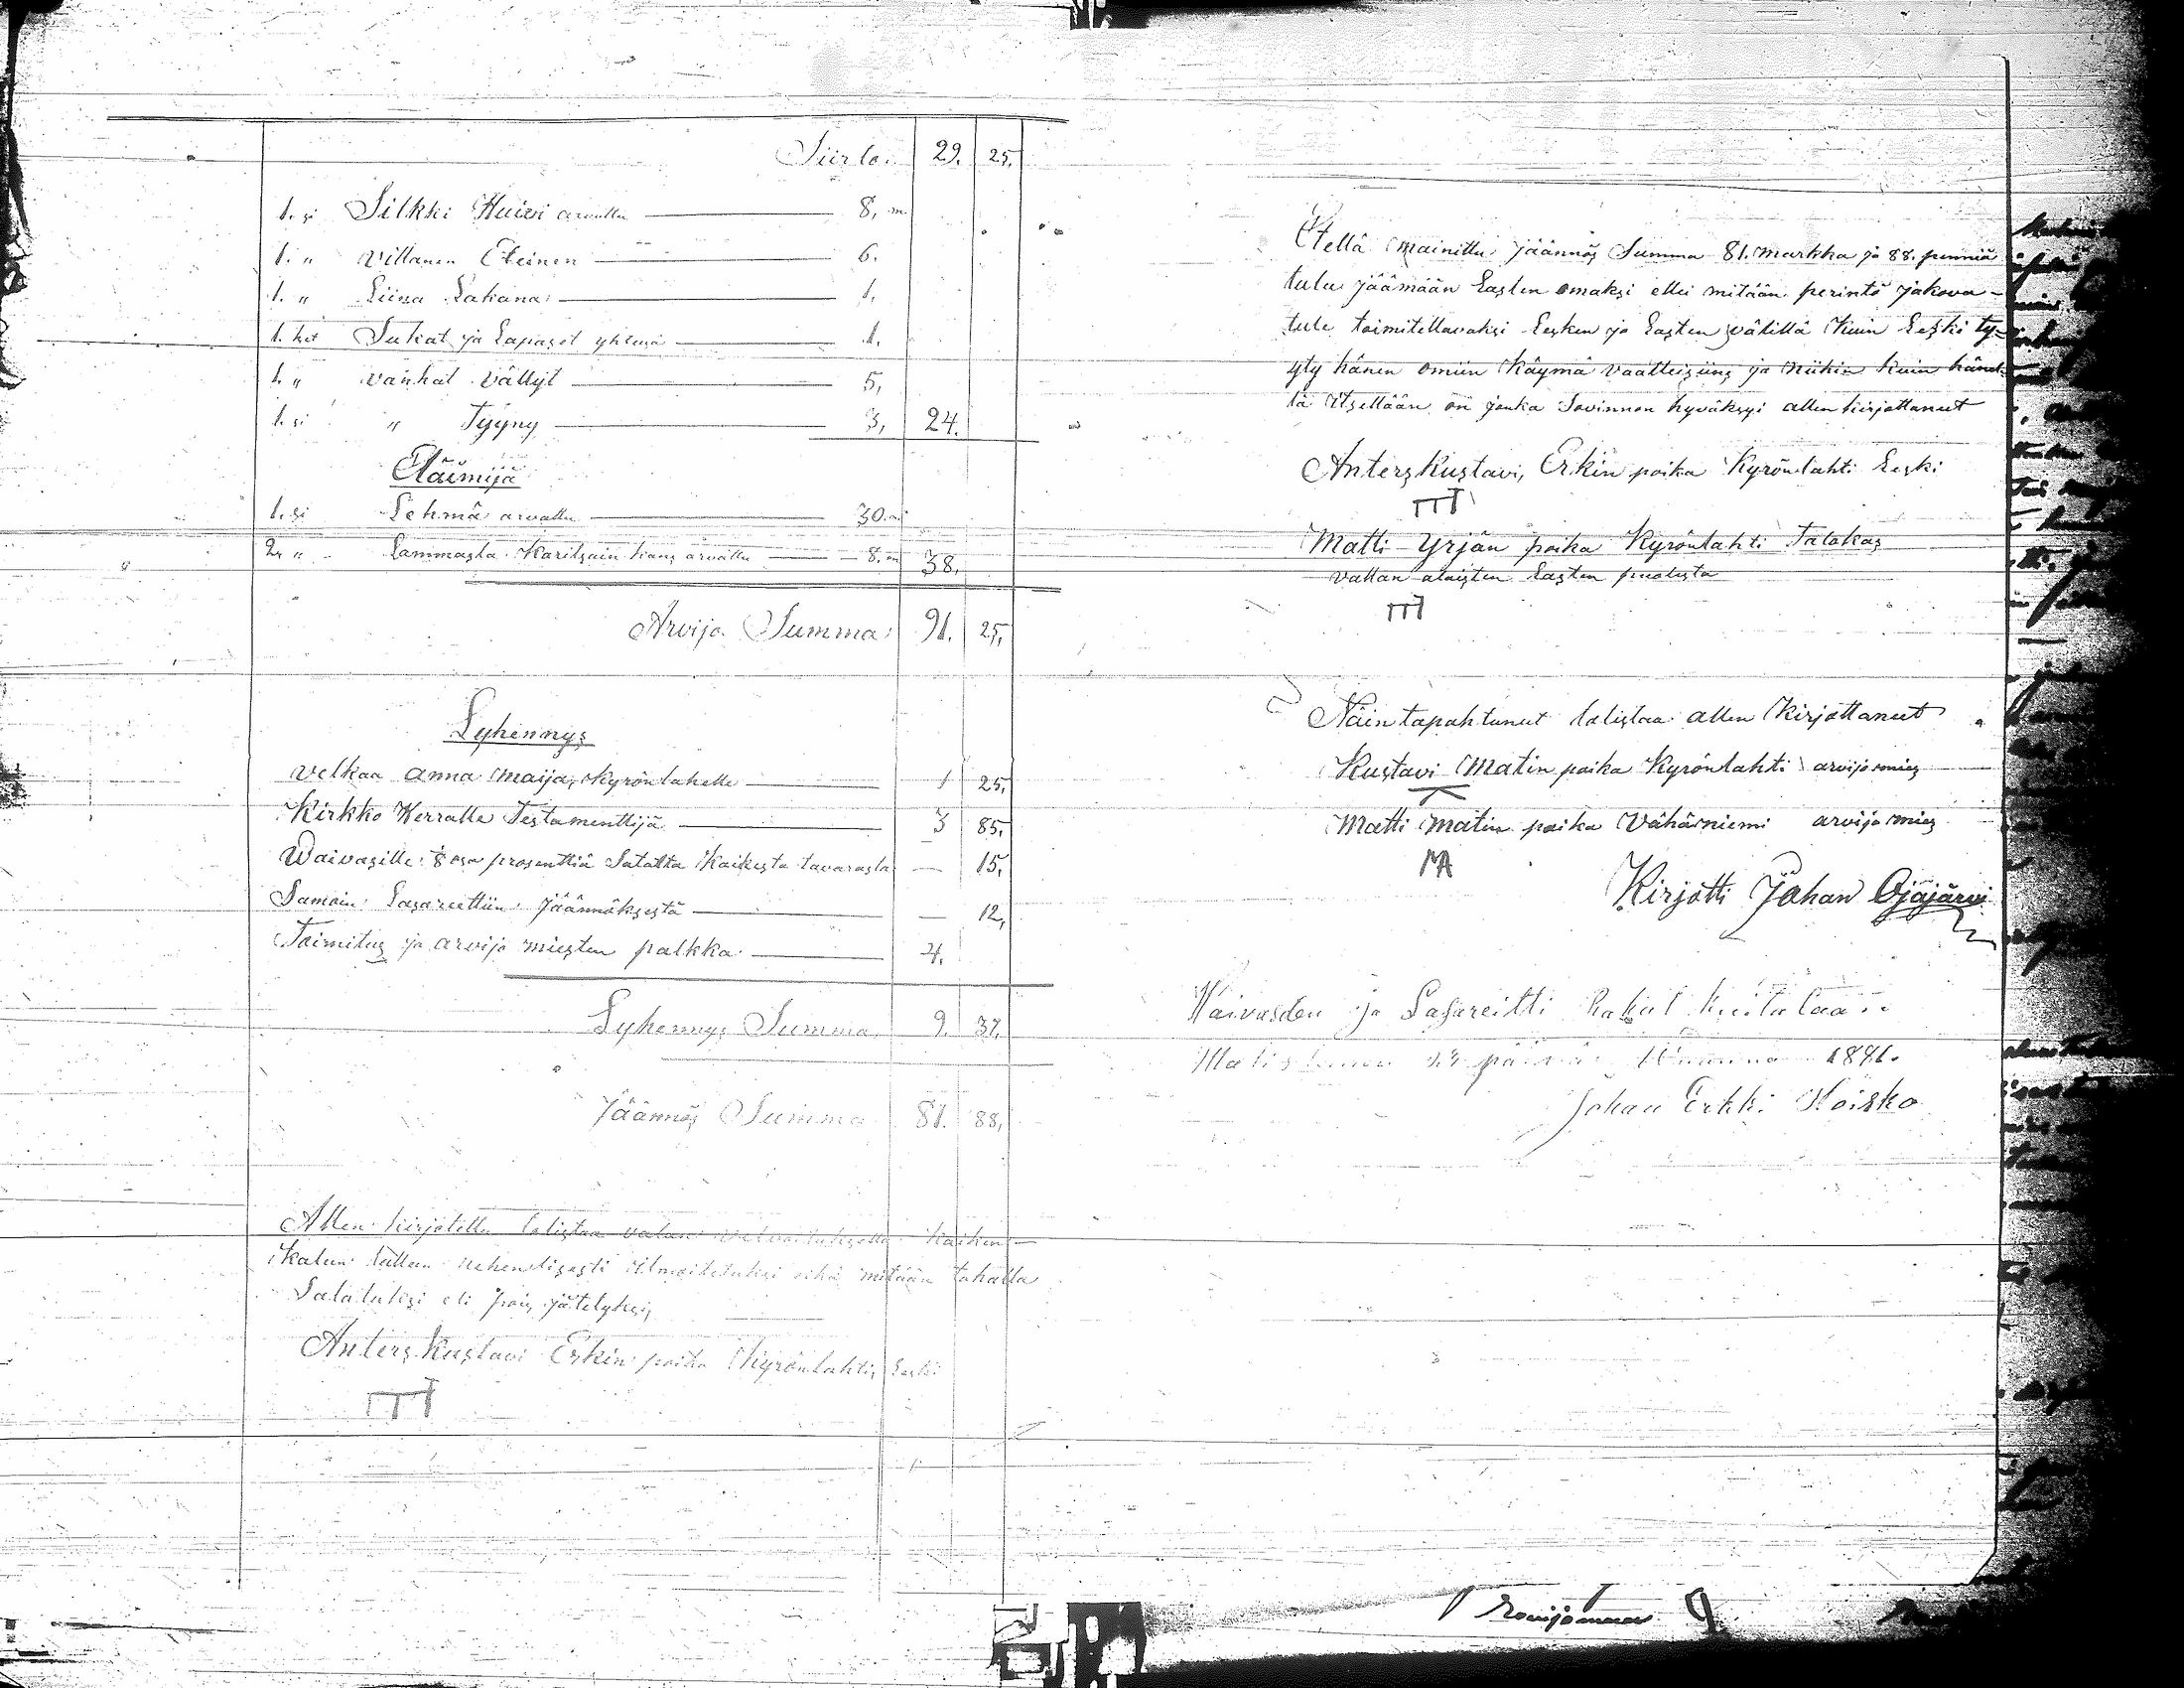 Siirto. 29. 25.
1. si Silkki Huivi arvattu 8, m.
1. " Villanen Eteinen 6.
1. " Liina Lakana 1.
1. ket Sukat ja Lapaset yhteisä 1.
1. " vanhat vällyt 5,
1. si " Tyyny 3, 24.
Eläimijä
1. si Lehmä arvattu 30. m
2. " Lammasta Karitsain kans arvattu 8. m 38.
Arvijo Summa 91. 25,
Lyhennys
Velkaa Anna Maija Kyrönlahelle 1 25,
Kirkko Herralle Testamenttijä 3 85,
Waivasille 1/8 osa prosenttiä Satalta Kaikesta tavarasta — 15,
Samoin Lasareettiin Jäännöksestä — 12,
Toimitus ja arvijo miesten palkka 4.
Lyhennys Summa 9. 37,
Jäännös Summa 81. 88,
Allen kirjotettu totistaa valan velvotuksella Kaiken
Kalun tullen rehendisesti ilmoitetuksi eikä mitään tahalla
Salatuksi eli pois jätetyksi,
Anters Kustavi Erkin poika Kyrönlahti, Leski
Etellä mainittu Jäännös Summa 81. Markka ja 88. penniä
tulee jäämään Lasten omaksi ettei mitään perintö jakova-
tule toimitettavaksi Lesken ja Lasten välillä Kuin Leski ty-
yty hänen omiin Käymä vaatteisiins ja niihin kuin händ-
lä itsellään on jonka Sovinnon hyväksyi allen kirjottanut
Anters Kustavi, Erkin poika Kyrönlahti Leski
Matti Yrjän poika Kyrönlahti Talokas
vallan alaisten Lasten puolesta
Näin tapahtunut totistaa allen Kirjottanut
Kustavi Matin poika Kyrönlahti arvijo mies
Matti Matin poika Vähäniemi arvijo mies
MA
Kirjotti Johan Ojajärvi
Waivasden ja Lasareitti Rahat kuitataan
13 päivä 1891.
Johan Erkki Koisko